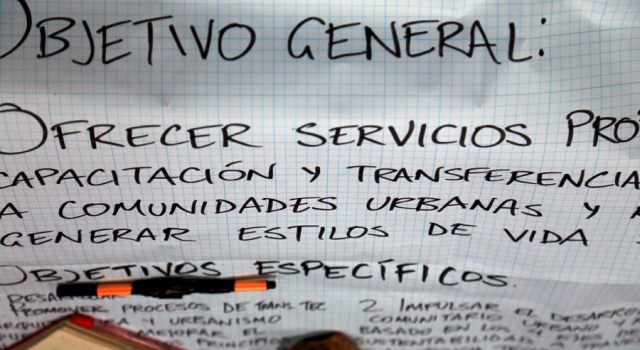 OBJETIVO GENERAL:
OFRECER SERVICIOS PRO
CAPACITACIÓN Y TRANSFERENCIA
A COMUNIDADES URBANAS Y
GENERAR ESTILOS DE VIDA
OBJETIVOS ESPECÍFICOS.
PROMOVER PROCESOS DE TRANS. TEC
URBANISMO
MEJORAR EL
2. IMPULSAR EL DESARRO
COMUNITARIO
BASADO EN LO URBANO Y